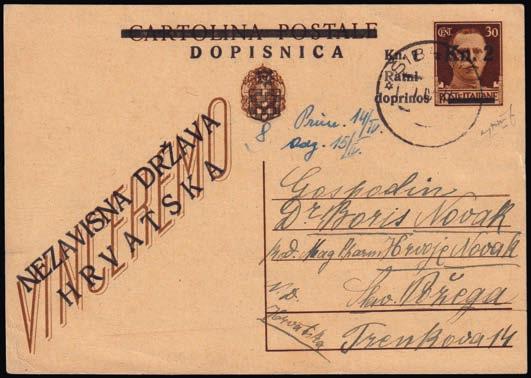 CARTOLINA POSTALE
DOPISNICA
CENT. 30
Kn. 1 Kn. 2
Ratni
doprinos
POSTE ITALIANE
VINCEREMO
NEZAVISNA DRŽAVA
HRVATSKA
8 Prim. 14/IV.
odg. 15/IV.
Gospodin
Dr Boris Novak
p.d. Mag Pharm Hrvoje Novak
Slav. Požega
N.D.
Hrvatska
Trenkova 14